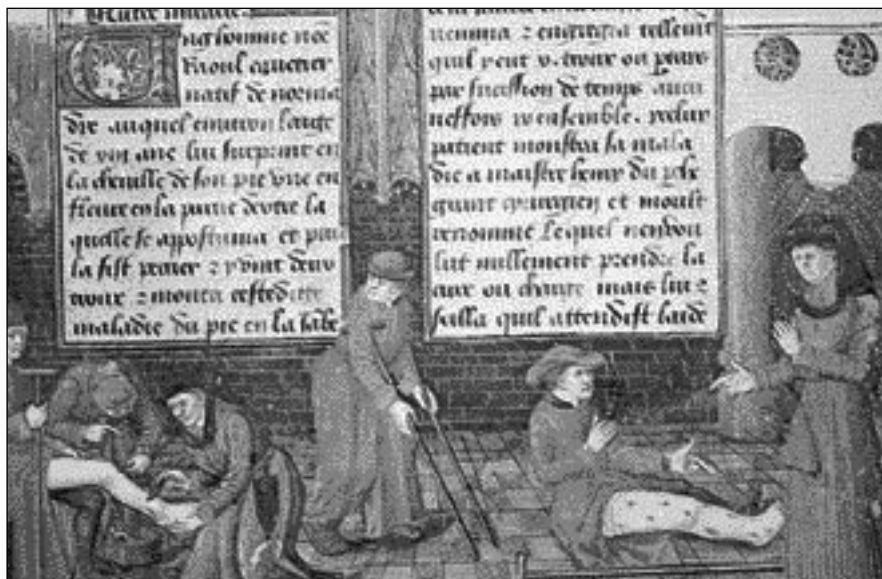 Ung homme no͞e
Raoul
natif de norma
die auquel environ laage
de vin ans lui surprint en
la cheuille de son pie vne en
fleure en la partie dextre la
quelle se appostuma et puis
la fist percer ⁊ y vint deux
troux ⁊ monta cestedicte
maladie du pie en la Iabe
⁊ engregea tellement
quil y eut v. troux ou plaies
par succession de temps aucu
neffois ensemble.
patient monstra sa mala
die a maistre henry du
quant cyrurgien et moult
renomme Lequel nen vou
lut nullement prendre la
cure ou charge mais lui 9
silla quil attendist laide